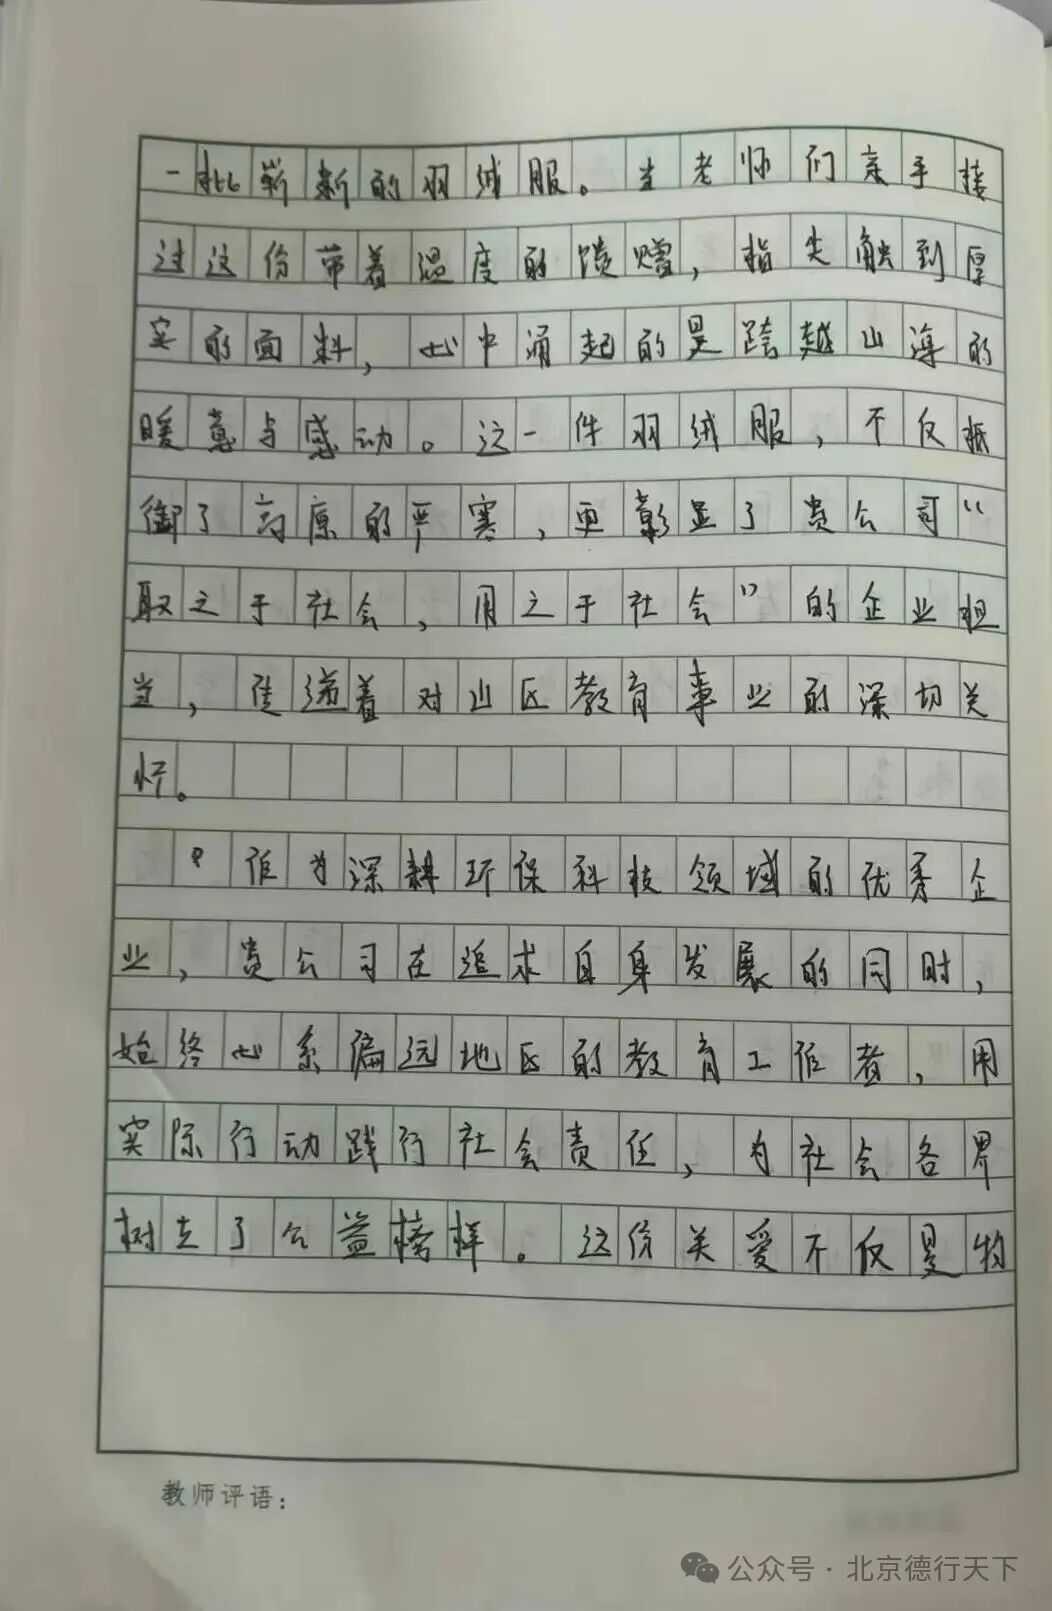 一批崭新的羽绒服。当老师们亲手接
过这份带着温度的馈赠，指尖触到厚
实的面料，心中涌起的是跨越山海的
暖意与感动。这一件羽绒服，不仅抵
御了高原的严寒，更彰显了贵公司“
取之于社会，用之于社会”的企业担
当，传递着对山区教育事业的深切关
怀。
作为深耕环保科技领域的优秀企
业，贵公司在追求自身发展的同时，
始终心系偏远地区的教育工作者，用
实际行动践行社会责任，为社会各界
树立了公益榜样。这份关爱不仅是物
教师评语：
公众号·北京德行天下